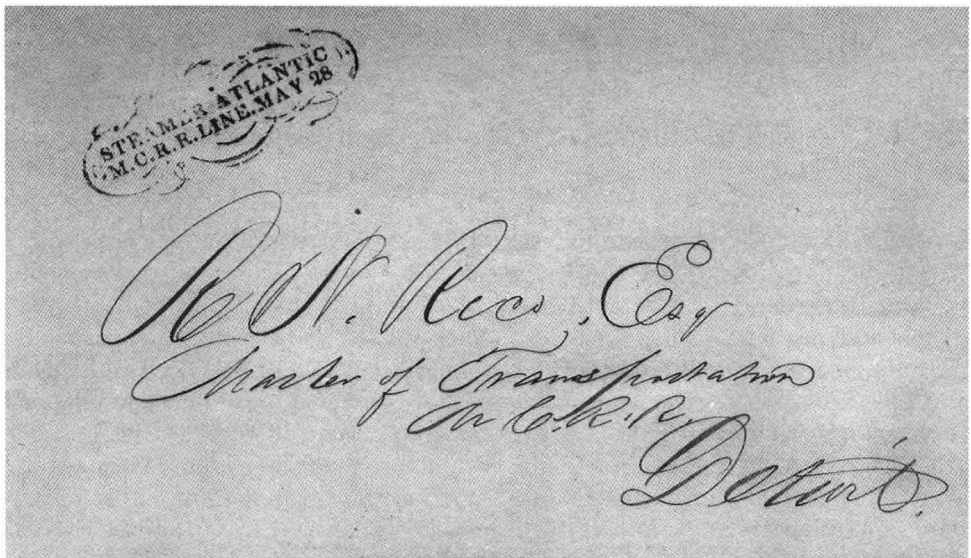 STEAMER ATLANTIC
M.C.R.R.LINE.MAY 28
R N. Rice, Esq
Master of Transportation
M C. R. R.
Detroit.